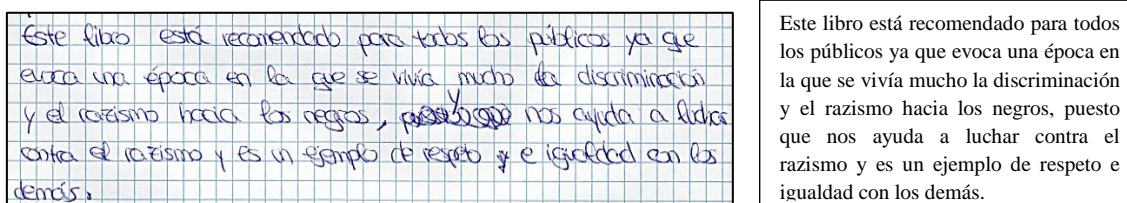 Este libro está recomendado para todos los públicos ya que
evoca una época en la que se vivía mucho la discriminación
y el razismo hacia los negros, y nos ayuda a luchar
contra el razismo y es un ejemplo de respeto e igualdad con los
demás.
Este libro está recomendado para todos
los públicos ya que evoca una época en
la que se vivía mucho la discriminación
y el razismo hacia los negros, puesto
que nos ayuda a luchar contra el
razismo y es un ejemplo de respeto e
igualdad con los demás.